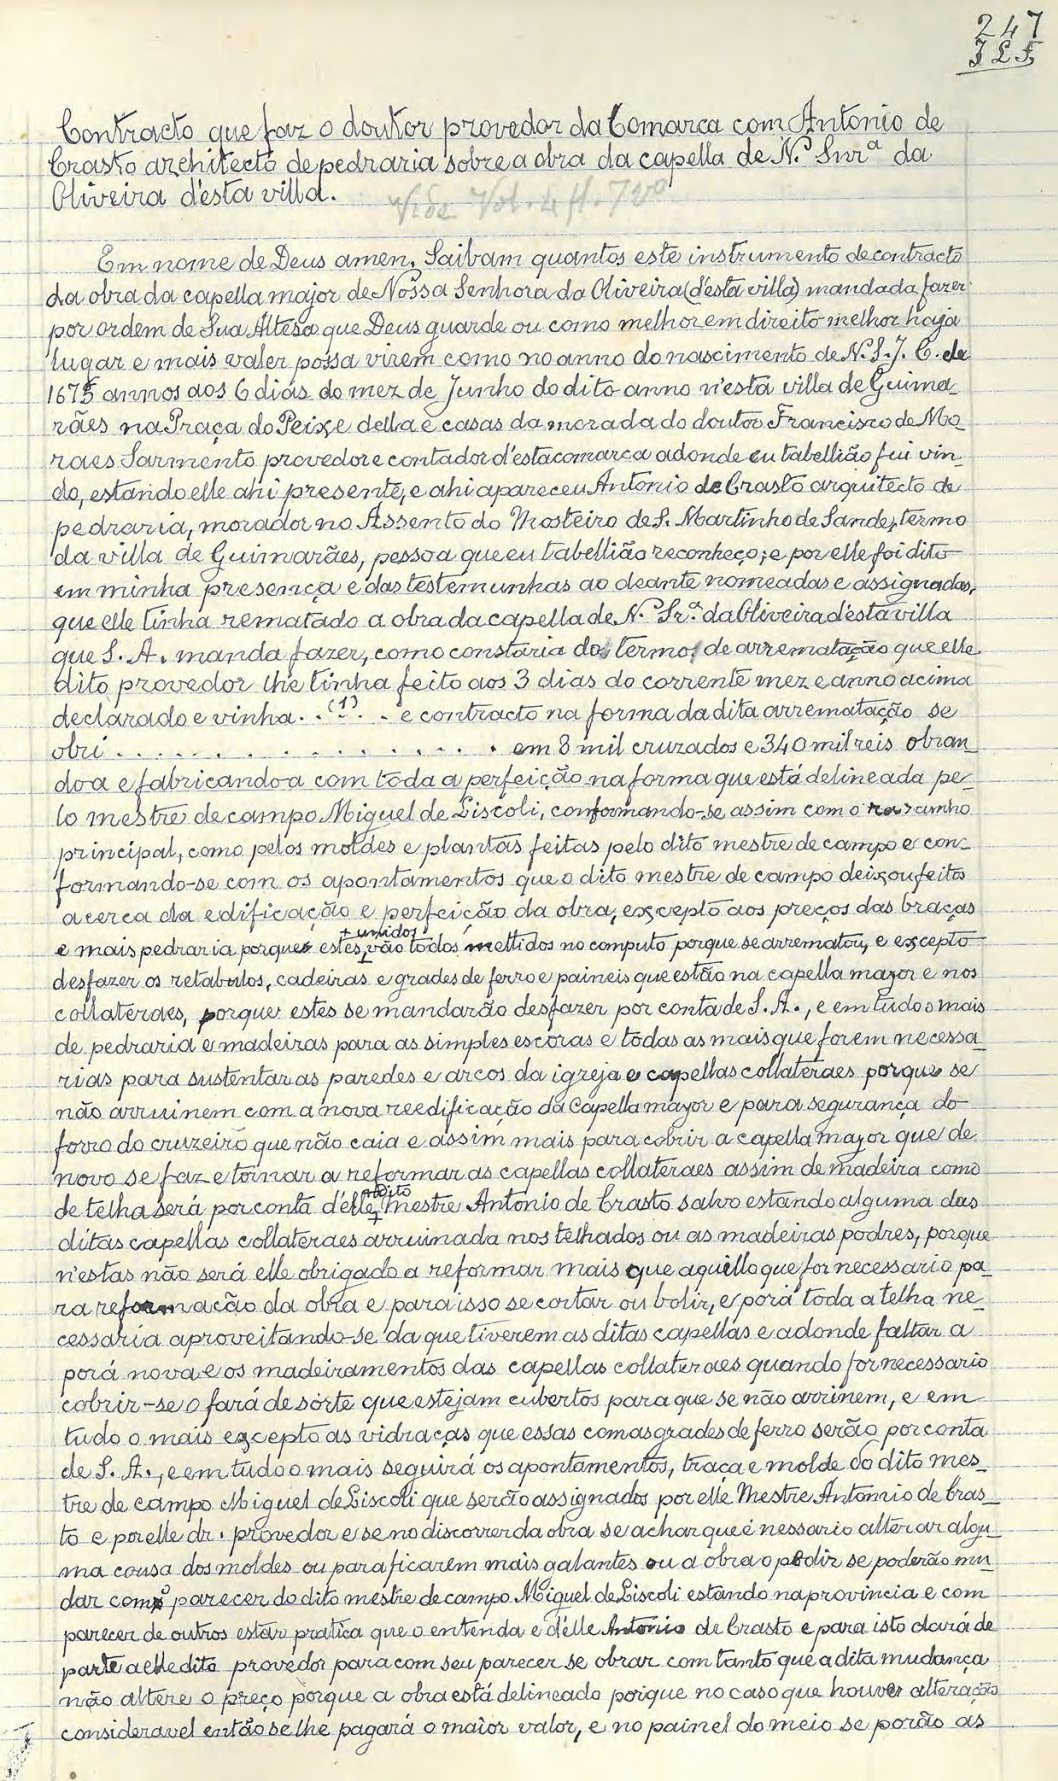 247
J L F
Contracto que faz o doutor provedor da Comarca com Antonio de
Crasto architecto de pedraria sobre a obra da capella de N.ª Snrª da
Oliveira d'esta villa.
Vide Vol. 4 fl. 7vº
Em nome de Deus amen. Saibam quantos este instrumento de contracto
da obra da capella major de Nossa Senhora da Oliveira (d'esta villa) mandada fazer
por ordem de Sua Altesa que Deus guarde ou como melhor em direito melhor haja
lugar e mais valer possa virem como no anno do nascimento de N. S. J. C. de
1675 annos aos 6 dias do mez de Junho do dito anno n'esta villa de Guima-
rães na Praça do Peixe della e casas da morada do doutor Francisco de Mo-
raes Sarmento provedor e contador d'esta comarca adonde eu tabellião fui vin-
do, estando elle ahi presente, e ahi apareceu Antonio de Crasto arquitecto de
pedraria, morador no Assento do Mosteiro de S. Martinho de Sande, termo
da villa de Guimarães, pessoa que eu tabellião reconheço; e por elle foi dito
em minha presença e das testemunhas ao deante nomeadas e assignadas,
que elle tinha rematado a obra da capella de N.ª Sr.ª da Oliveira d'esta villa
que S. A. manda fazer, como constaria do termo de arrematação que elle
dito provedor lhe tinha feito aos 3 dias do corrente mez e anno acima
declarado e vinha. . (1) . . e contracto na forma da dita arrematação se
obri . . . . . . . . . . . . . . . . em 8 mil cruzados e 340 mil reis obran-
do-a e fabricando-a com toda a perfeição na forma que está delineada pe-
lo mestre de campo Miguel de Liscoli, conformando-se assim com o rascunho
principal, como pelos moldes e plantas feitas pelo dito mestre de campo e con-
formando-se com os apontamentos que o dito mestre de campo deixou feitos
acerca da edificação e perfeição da obra, excepto aos preços das braças
+ unidos
e mais pedraria porque estes, + vão todos mettidos no computo porque se arrematou, e excepto
desfazer os retabulos, cadeiras e grades de ferro e paineis que estão na capella mayor e nos
collateraes, porque estes se mandarão desfazer por conta de S. A., e em tudo o mais
de pedraria e madeiras para as simples escoras e todas as mais que forem necessa-
rias para sustentar as paredes e arcos da igreja e capellas collateraes porque se
não arruinem com a nova reedificação da Capella mayor e para segurança do
forro do cruzeiro que não caia e assim mais para cobrir a capella mayor que de
novo se faz e tornar a reformar as capellas collateraes assim de madeira como
+ dito
de telha será por conta d'elle + mestre Antonio de Crasto salvo estando alguma das
ditas capellas collateraes arruinada nos telhados ou as madeiras podres, porque
n'estas não será elle obrigado a reformar mais que aquillo que for necessario pa-
ra reformação da obra e para isso se cortar ou bolir, e porá toda a telha ne-
cessaria aproveitando-se da que tiverem as ditas capellas e adonde faltar a
porá nova e os madeiramentos das capellas collateraes quando for necessario
cobrir-se o fará de sorte que estejam cubertos para que se não arrinem, e em
tudo o mais excepto as vidraças que essas com as grades de ferro serão por conta
de S. A., e em tudo o mais seguirá os apontamentos, traça e molde do dito mes-
tre de campo Miguel de Liscoli que serão assignados por elle Mestre Antonio de Cras-
to e por elle dr. provedor e se no discorrer da obra se achar que é nessario alterar algu-
ma cousa dos moldes ou para ficarem mais galantes ou a obra o pedir se poderão mu-
dar com o parecer do dito mestre de campo Miguel de Liscoli estando na provincia e com
parecer de outros estar pratica que o entenda e d'elle Antonio de Crasto e para isto dará de
parte a elle dito provedor para com seu parecer se obrar com tanto que a dita mudança
não altere o preço porque a obra está delineado porque no caso que houver alteração
consideravel então se lhe pagará o maior valor, e no painel do meio se porão as